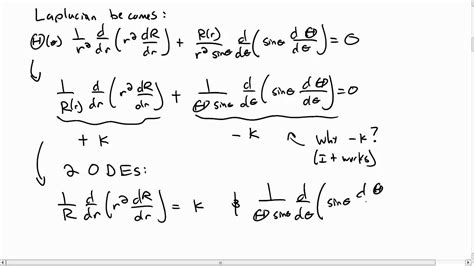 Laplacian becomes:
Θ(θ) 1/r² d/dr (r² dR/dr) + R(r)/(r² sinθ) d/dθ (sinθ dΘ/dθ) = 0
1/R(r) d/dr (r² dR/dr) + 1/(Θ sinθ) d/dθ (sinθ dΘ/dθ) = 0
+ K - K ← Why -K?
(It works)
2 ODEs:
1/R d/dr (r² dR/dr) = K & 1/(Θ sinθ) d/dθ (sinθ d Θ